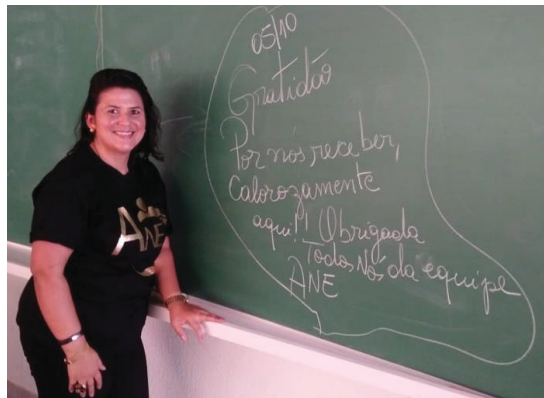 05/10
Gratidão
Por nós receber,
Calorozamente
aqui!! Obrigada
Todos Nós da equipe
ANE
ANE